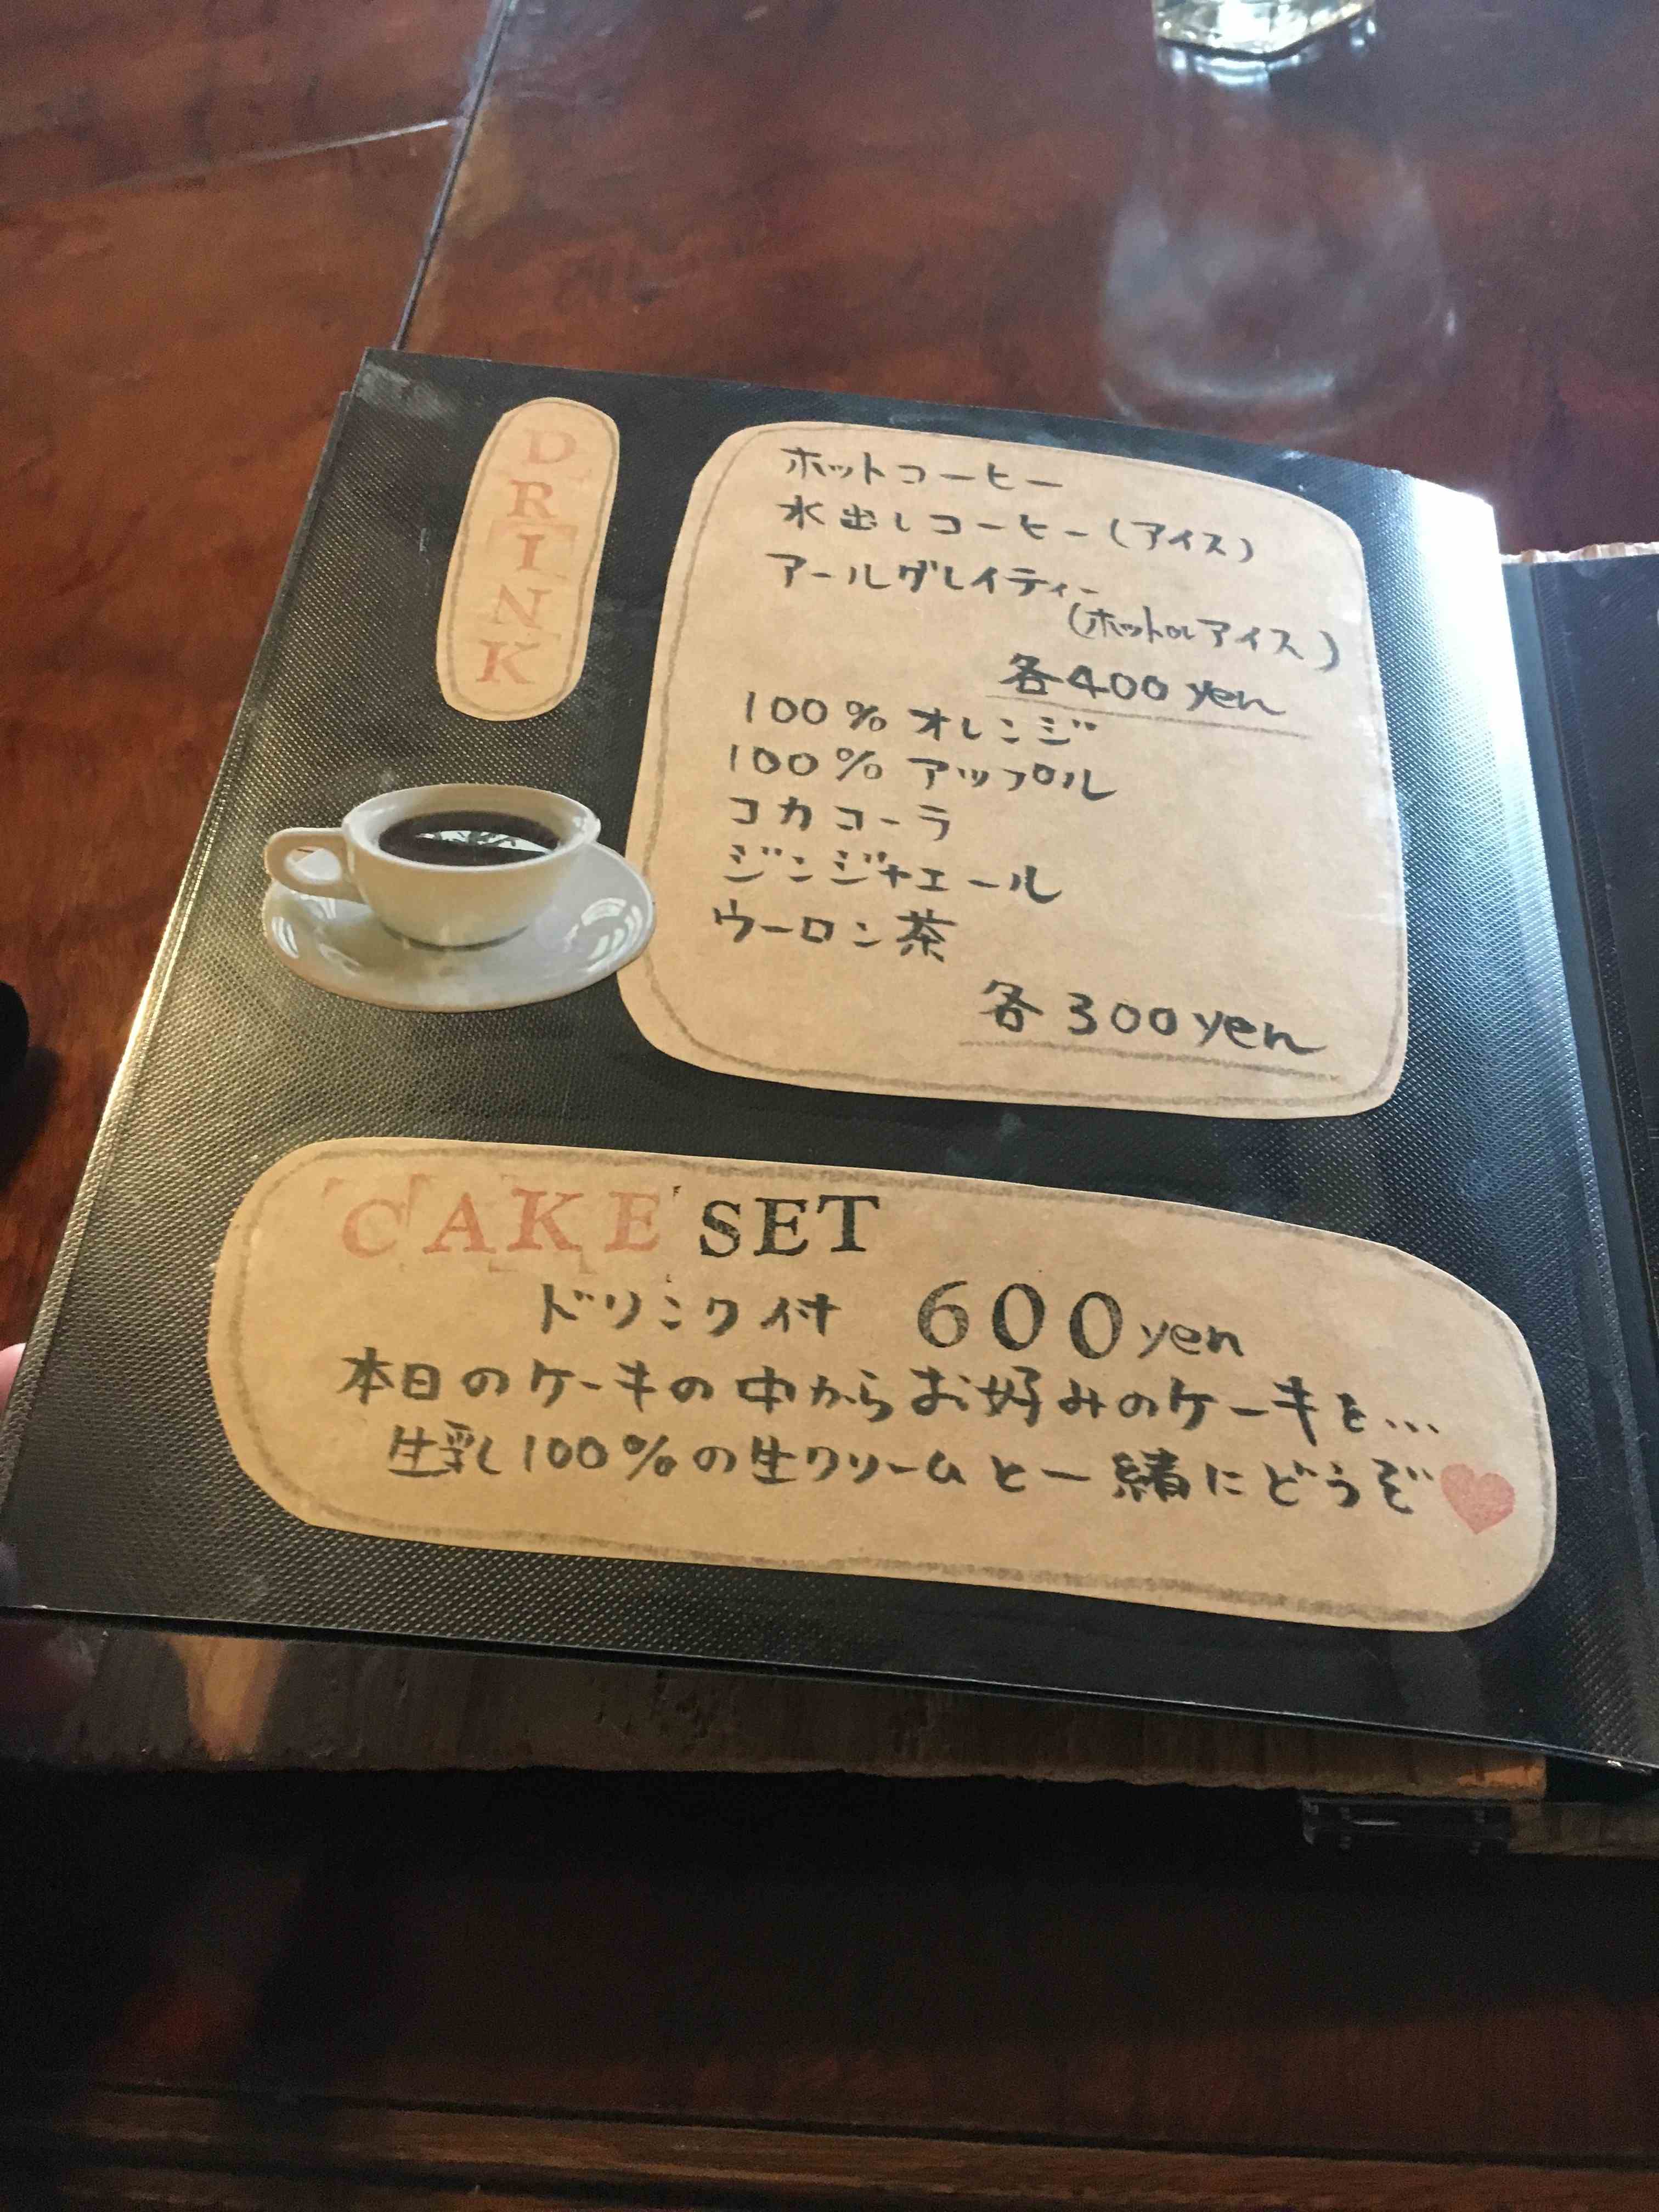 DRINK
ホットコーヒー
水出しコーヒー(アイス)
アールグレイティー
(ホットorアイス)
各400yen
100%オレンジ
100%アップル
コカコーラ
ジンジャエール
ウーロン茶
各300yen
CAKE SET
ドリンク付 600yen
本日のケーキの中からお好みのケーキを...
生乳100%の生クリームと一緒にどうぞ♥